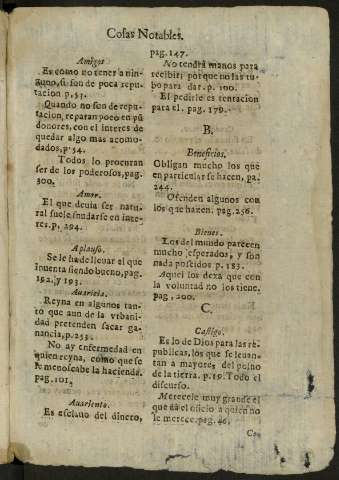 Cosas Notables.
Amigos
Es como no tener a nin-
guno, si son de poca repu
tacion p. 51.
Quando no son de repu-
tacion, reparan poco en pū
donores, con el interes de
quedar algo mas acomo-
dados, p 54.
Todos lo procuran
ser de los poderosos, pag.
300.
Amor.
El que devia ser natu
ral suele fundarse en inte-
res. p, 294.
Aplauso.
Se le ha de llevar el que
inuenta siendo bueno, pag.
192. y 193.
Auaricia.
Reyna en algunos tan-
to que aun de la vrbani-
dad pretenden sacar ga-
nancia, p. 253.
No ay enfermedad en
quien reyna, como que se
le menoscabe la hacienda.
pag. 101,
Auariento.
Es esclavo del dinero,
pag. 147.
No tendrá manos para
recibir; porque no las tu-
bo para dar. p. 100.
El pedirle es tentacion
para el. pag. 179.
B.
Beneficios.
Obligan mucho los que
en particular se hacen, pa.
244.
Ofenden algunos con
los que hacen. pag. 256.
Bienes.
Los del mundo parecen
mucho esperados, y son
nada poseidos p. 183.
Aquel los dexa que con
la voluntad no los tiene.
pag, 200.
C.
Castigo.
Es lo de Dios para las re-
publicas, los que se leuan-
tan a mayores, del polvo
de la tierra. p. 19. Todo el
discurso.
Merecele muy grande el
que dá el oficio a quien no
le merece. pag. 46,
Co-